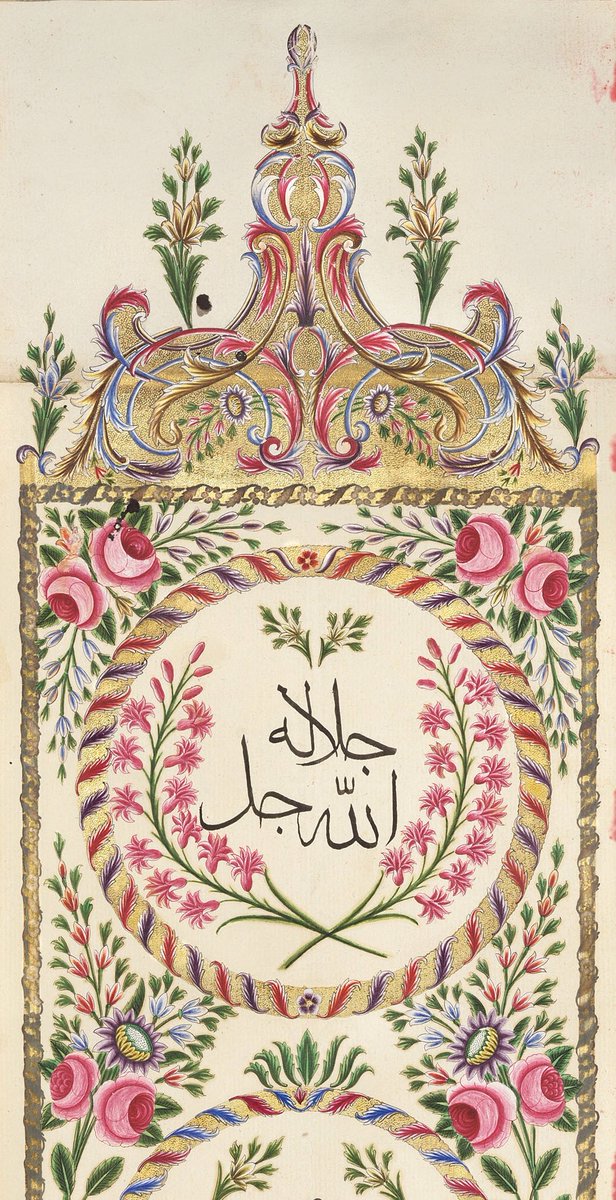 الله جل
جلاله